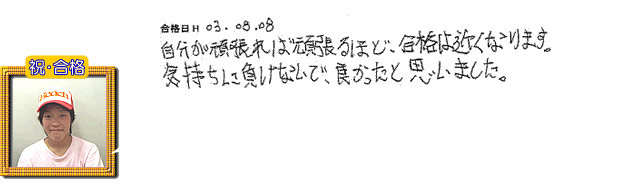 合格日H 03.09.08
自分が頑張れば頑張るほど、合格は近くなります。
気持ちに負けないで、良かったと思いました。
祝・合格